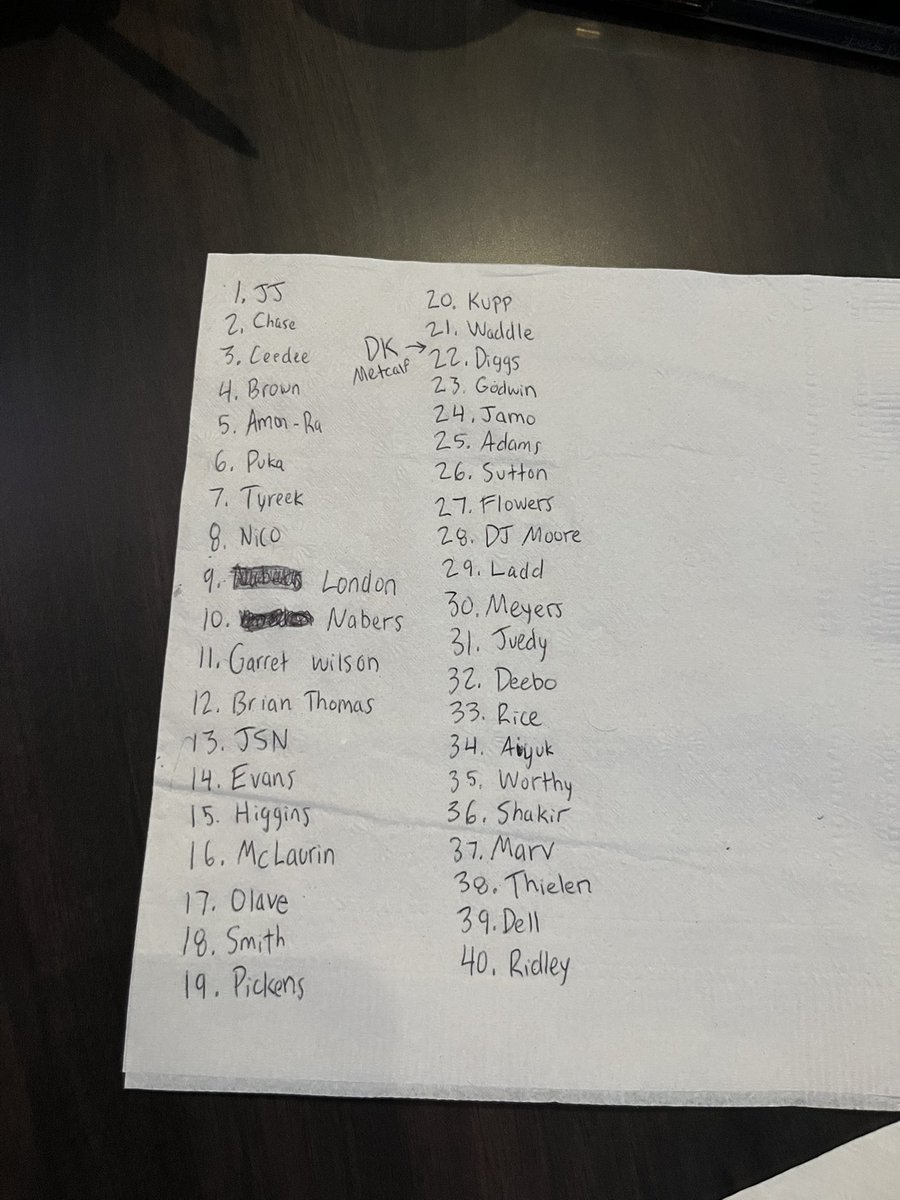 1. JJ
2. Chase
3. Ceedee
4. Brown
5. Amon-Ra
6. Puka
7. Tyreek
8. Nico
9. London
10. Nabers
11. Garret wilson
12. Brian Thomas
13. JSN
14. Evans
15. Higgins
16. McLaurin
17. Olave
18. Smith
19. Pickens
20. Kupp
21. Waddle
DK →
Metcalf
22. Diggs
23. Godwin
24. Jamo
25. Adams
26. Sutton
27. Flowers
28. DJ Moore
29. Ladd
30. Meyers
31. Juedy
32. Deebo
33. Rice
34. Aiyuk
35. Worthy
36. Shakir
37. Marv
38. Thielen
39. Dell
40. Ridley